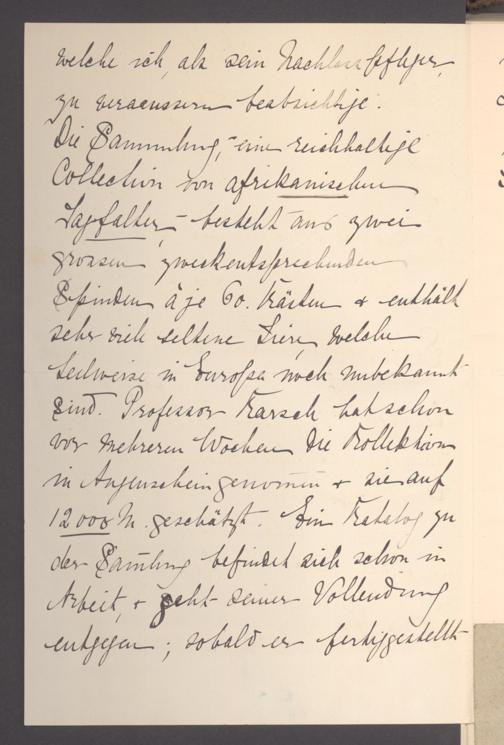 welche ich, als sein Nachlasspfleger,
zu veraeussern beabsichtige.
Die Sammlung, - eine reichhaltige
Collection von afrikanischen
Tagfalter, - besteht aus zwei
grossen, zweckentsprechenden
Spinden à je 60. Kästen + enthält
sehr viele seltene Tiere, welche
teilweise in Europa noch unbekannt
sind. Professor Karsch hat schon
vor mehreren Wochen die Kollektion
in Augenschein genommen + sie auf
12000 M. geschätzt. Ein Katalog zu
der Sam̅lung befindet sich schon in
Arbeit, + geht seiner Vollendung
entgegen; sobald er fertiggestellt